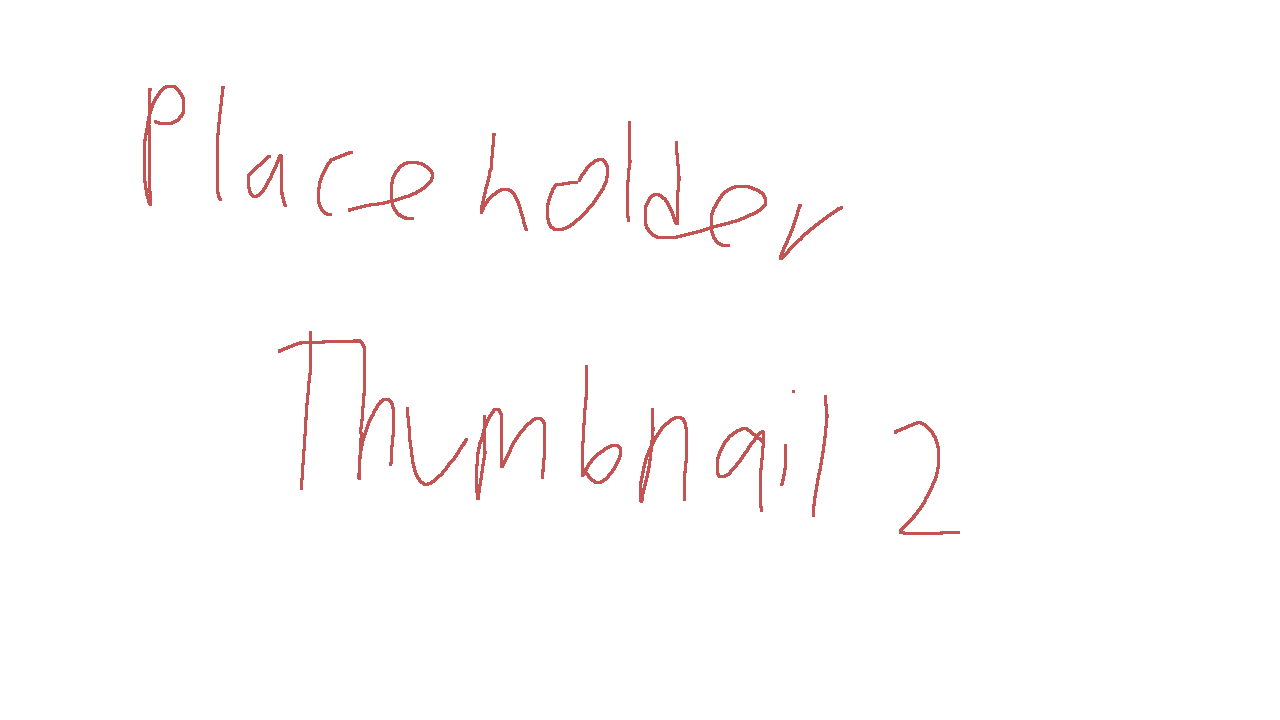 Placeholder
Thumbnail 2